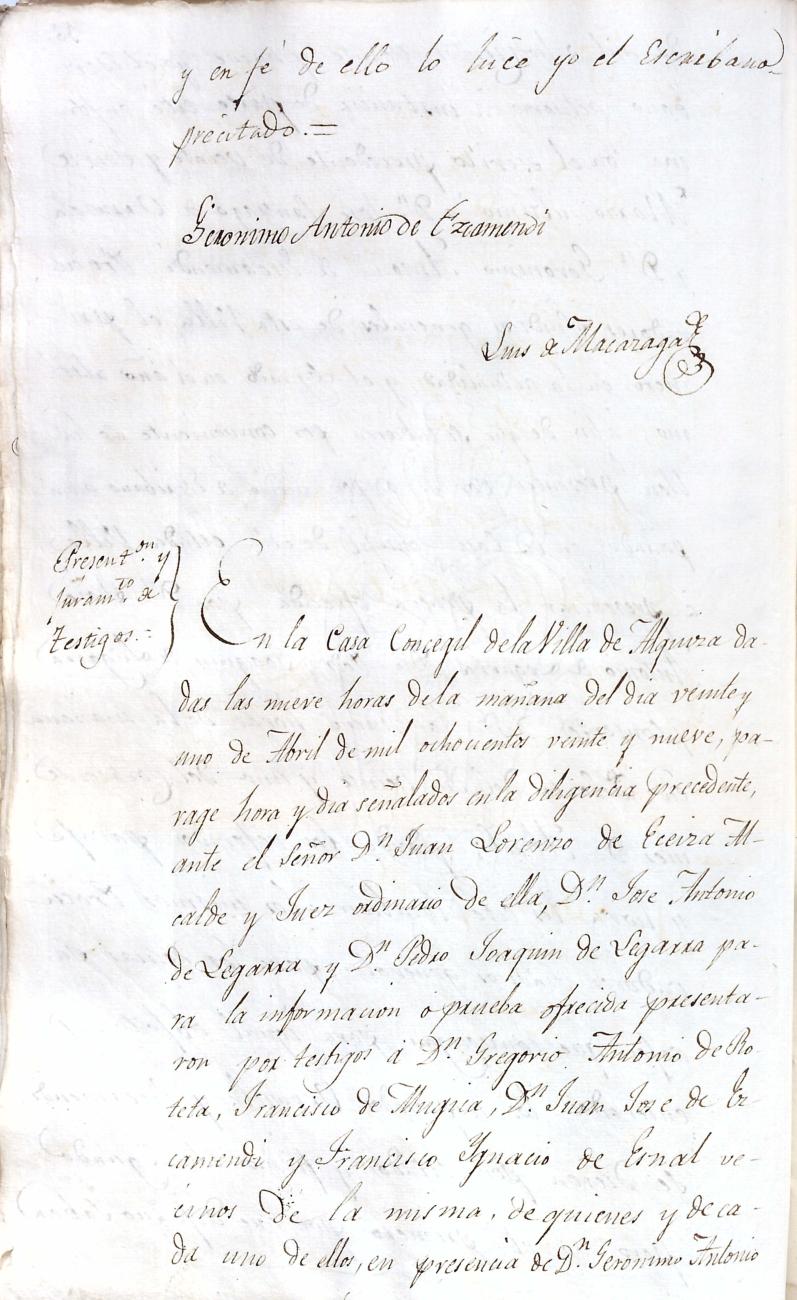 y en fé de ello lo hice yo el Escribano
precitado.=
Geronimo Antonio de Ezcamendi
Luis de Macazaga
Present.on y
juram.to de
testigos.=
En la Casa Concegil de la Villa de Alquiza da-
das las nueve horas de la mañana del dia veinte y
uno de Abril de mil ochocientos veinte y nueve, pa-
rage hora y dia señalados en la diligencia precedente,
ante el señor D.n Juan Lorenzo de Eceiza Al-
calde y Juez ordinario de ella, D.n Jose Antonio
de Legarra y D.n Pedro Joaquin de Legarra pa-
ra la informacion o prueba ofrecida presenta-
ron por testigos á D.n Gregorio Antonio de Ro-
teta, Francisco de Mugica, D.n Juan Jose de Ez-
camendi y Francisco Ygnacio de Esnal ve-
cinos de la misma, de quienes y de ca-
da uno de ellos, en presencia de D.n Geronimo Antonio